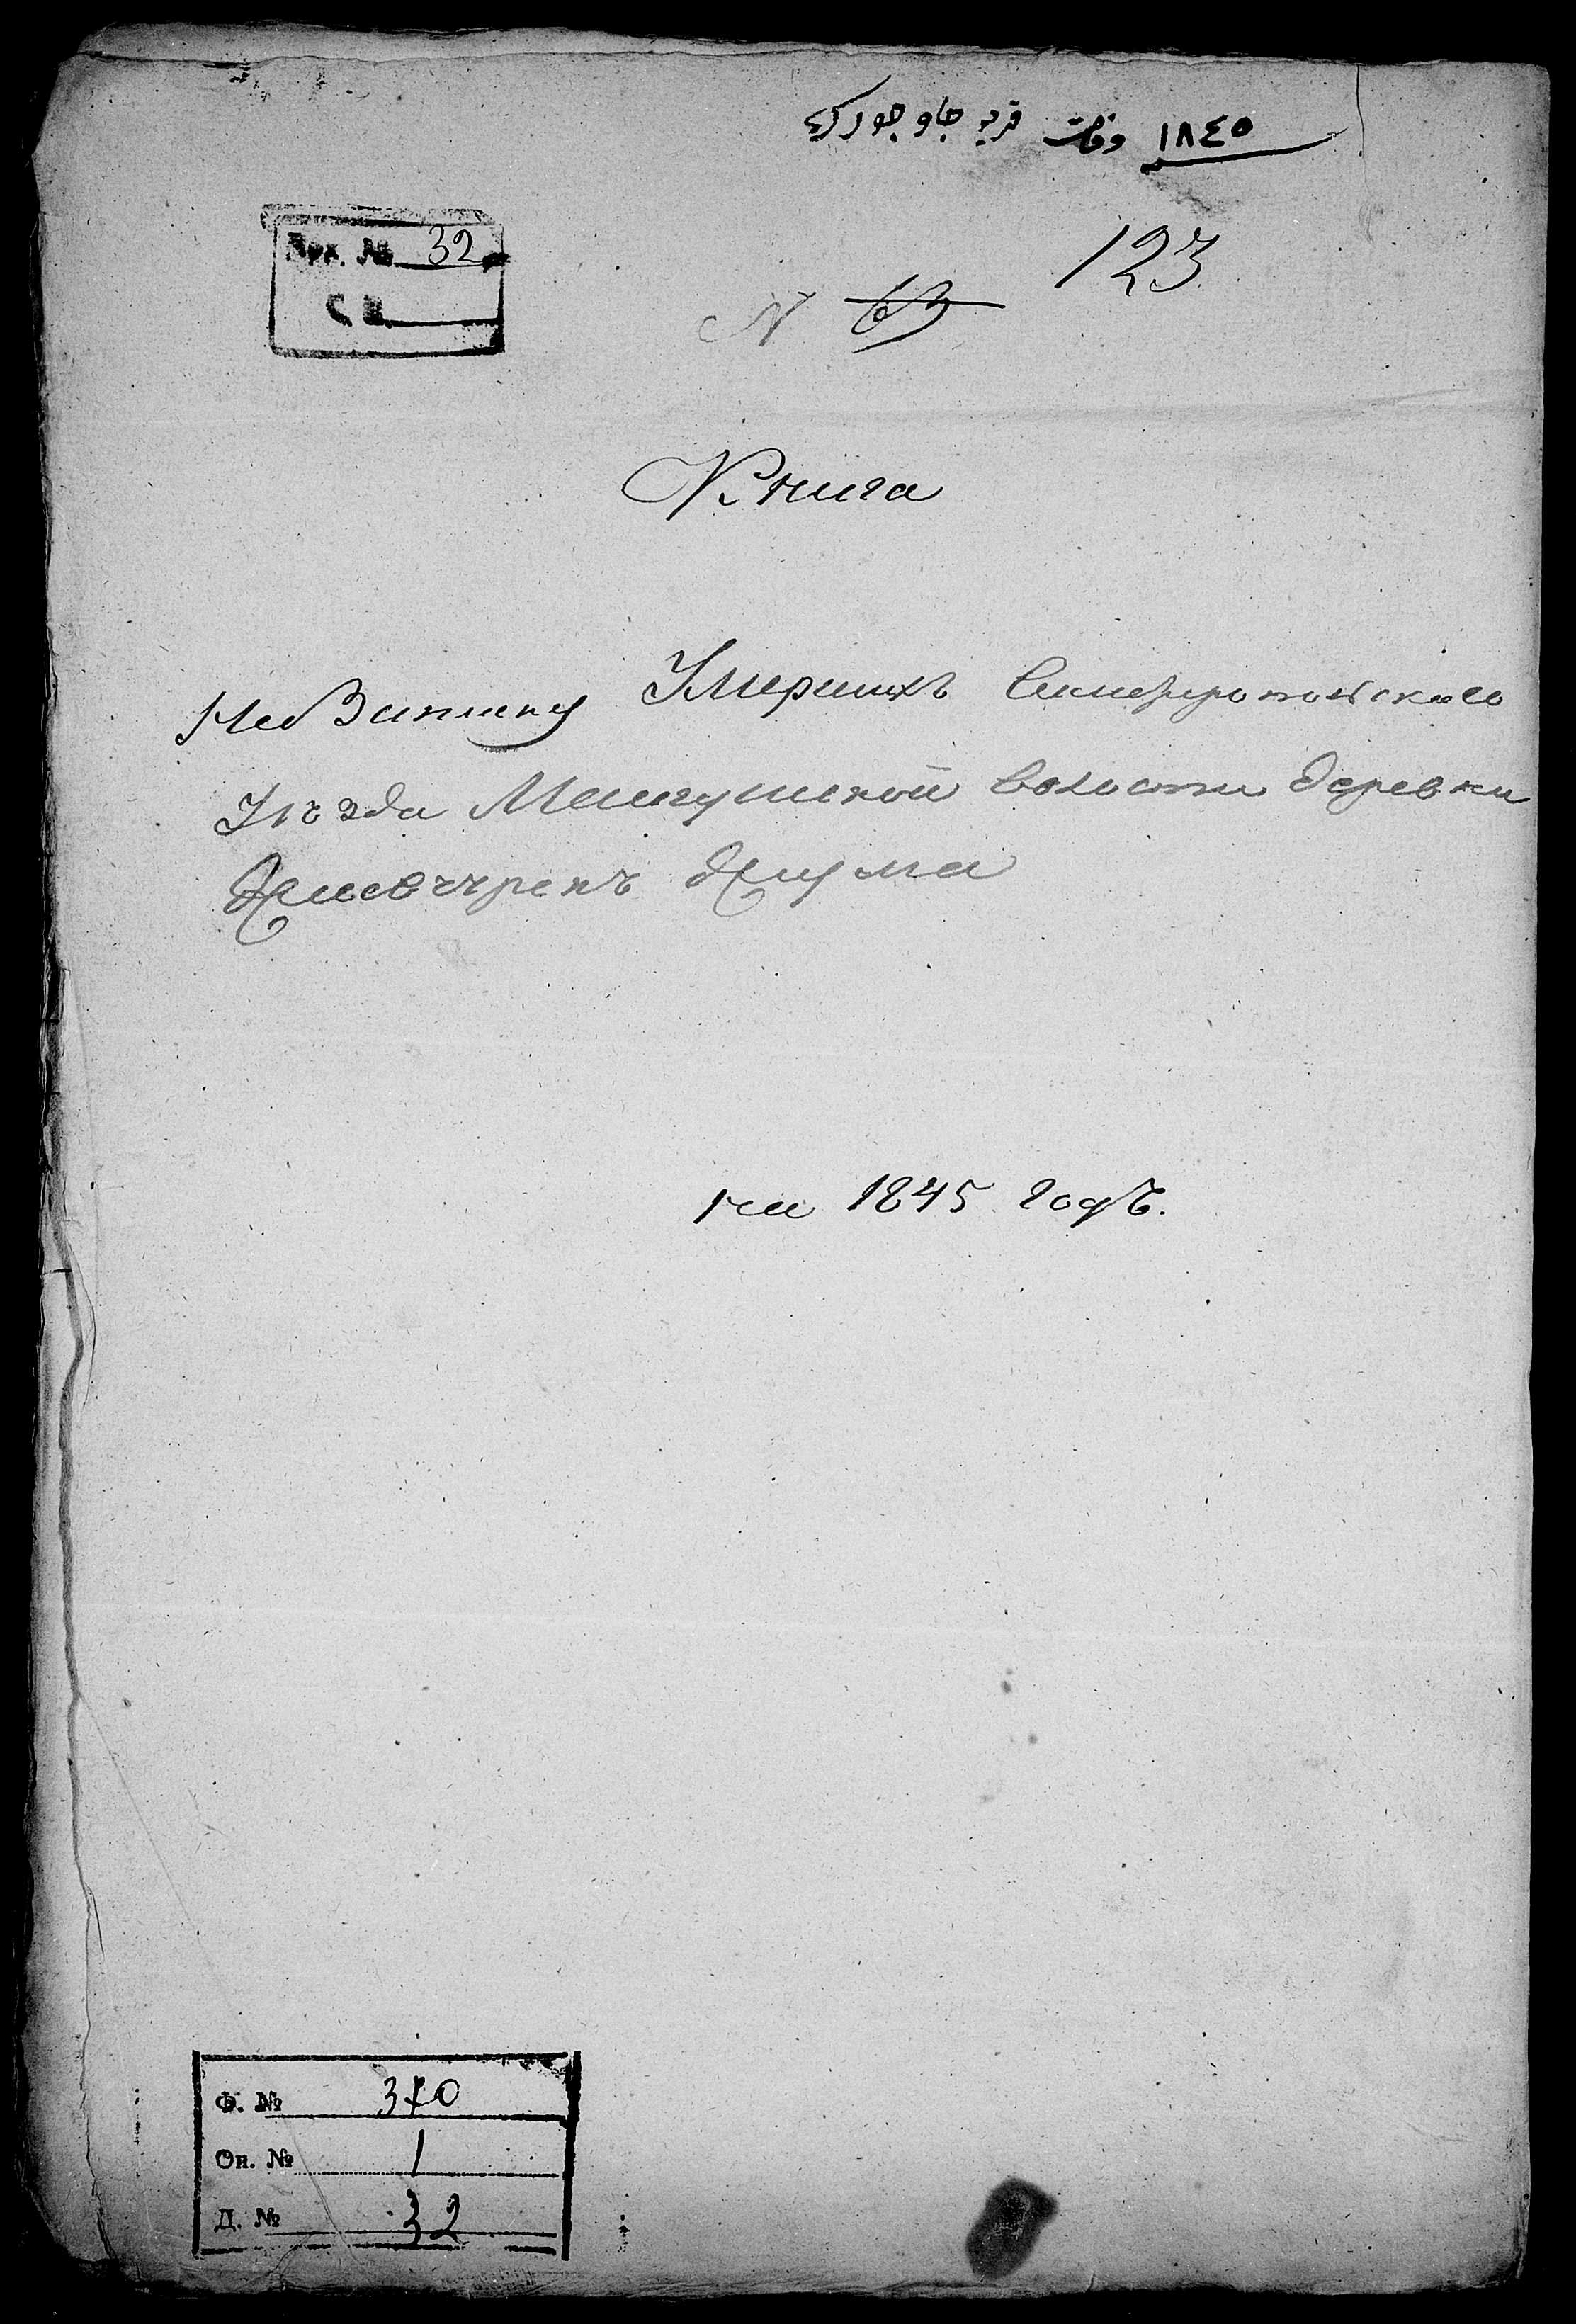 ١٨٤٥ وفات قريه جاوجورك
Арх. № 32
С В.
N 63 123
Книга
На Записку Умершихъ Симферопольскаго
Уѣзда Мангушской волости деревни
Джавчрекъ Джума
на 1845 годъ.
Ф. № 370
Оп. № 1
Д. № 32